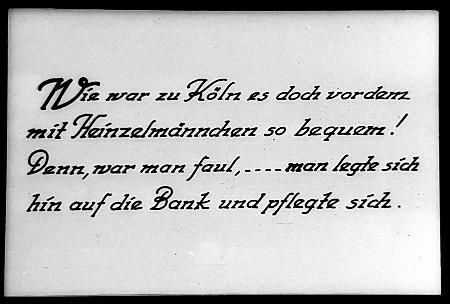 Wie war zu Köln es doch vordem
mit Heinzelmännchen so bequem!
Denn, war man faul,....man legte sich
hin auf die Bank und pflegte sich.